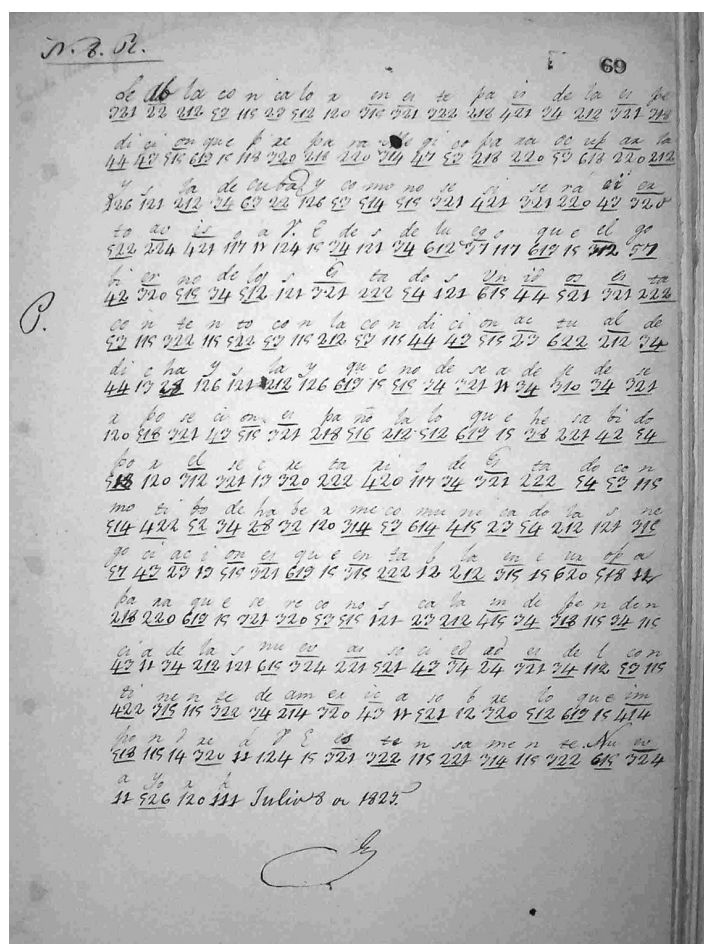 N. B. R.
69
Se ab la co n ca lo r en es te pa is de la es pe
321 22 212 53 115 23 512 120 315 321 322 218 421 34 212 321 318
di ci on que p re pa ra co pa ra oc up ar la
44 43 515 613 15 118 320 218 220 314 47 53 218 220 53 618 220 212
y s la de cuba y co mo no se si se rá ci er
126 121 212 34 63 22 126 53 514 515 321 421 321 220 43 320
to av is o a V. E de s de lu ego que el go
522 224 421 117 11 124 15 34 121 34 612 57 117 613 15 312 57
bi er no de los s Es ta do s Un id os es ta
42 320 515 34 512 121 321 222 54 121 615 44 521 321 222
P.
co n te n to con la co n di ci on ac tu al de
53 115 322 115 522 53 115 212 53 115 44 43 515 23 622 212 34
di cha y s la y que no de se a de je de se
44 13 28 126 121 212 126 613 15 515 34 321 11 34 310 34 321
r po se ci on es pa ño la lo que he sa bi do
120 518 321 43 515 321 218 516 212 512 613 15 38 221 42 54
po r el se c re ta ri o de Es ta do con
518 120 312 321 13 320 222 420 117 34 321 222 54 53 115
mo ti bo de ha be r me co mu ni ca do la s ne
514 422 52 34 28 32 120 314 53 614 415 23 54 212 121 315
go ci ac i on es que en ta b la en e ur op a
57 43 23 19 515 321 613 15 315 222 12 212 315 15 620 518 11
pa ra que se re co no s ca la in de pe n den
218 220 613 15 321 320 53 515 121 23 212 415 34 318 115 34 115
ci a de la s nu ev as so ci ed ad es de l con
43 11 34 212 121 615 324 221 521 43 34 24 321 34 112 53 115
ti nen te de am er ic a so b re lo que im
422 315 115 322 34 214 320 43 11 521 12 320 512 613 15 414
pon d re á V E es te n sa me n te. Nu ev
518 115 14 320 11 124 15 321 322 115 221 314 115 322 615 324
a yo r k
11 526 120 111 Julio 8 de 1825.